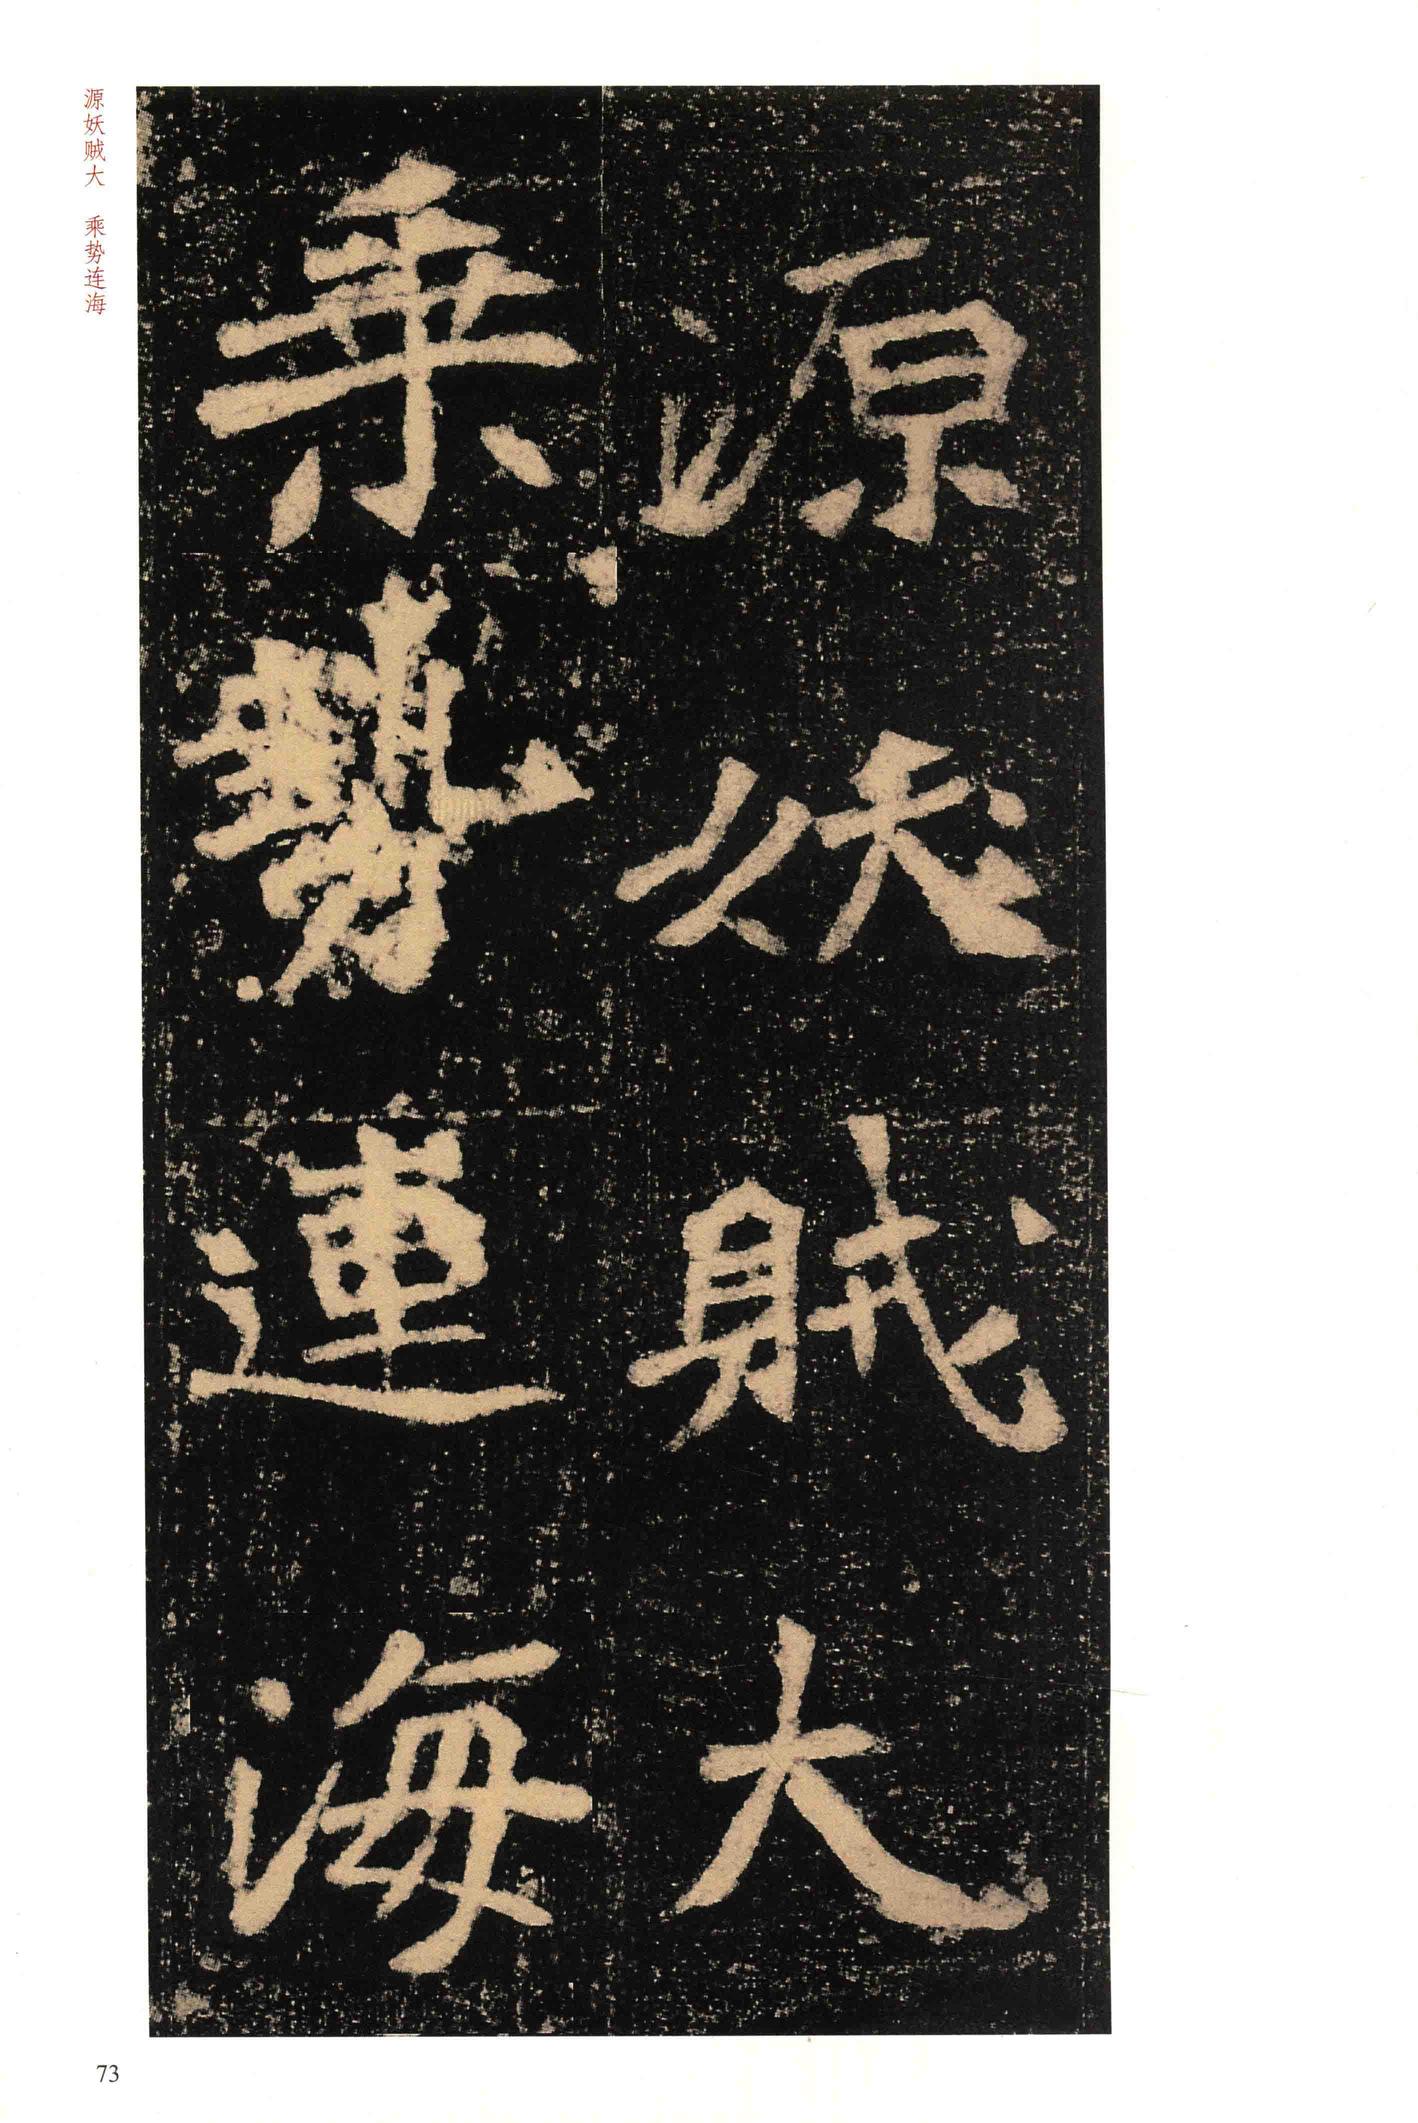 源妖賊大
乗勢連海
源妖贼大 乘势连海
73